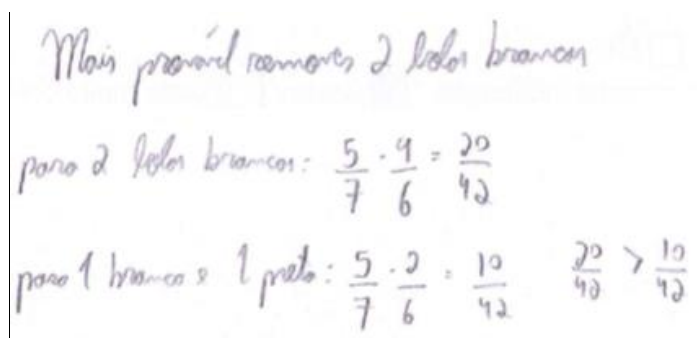 Mais provável remover 2 bolas brancas
para 2 bolas brancas: 5/7 · 4/6 = 20/42
para 1 branca e 1 preta: 5/7 · 2/6 = 10/42 20/42 > 10/42